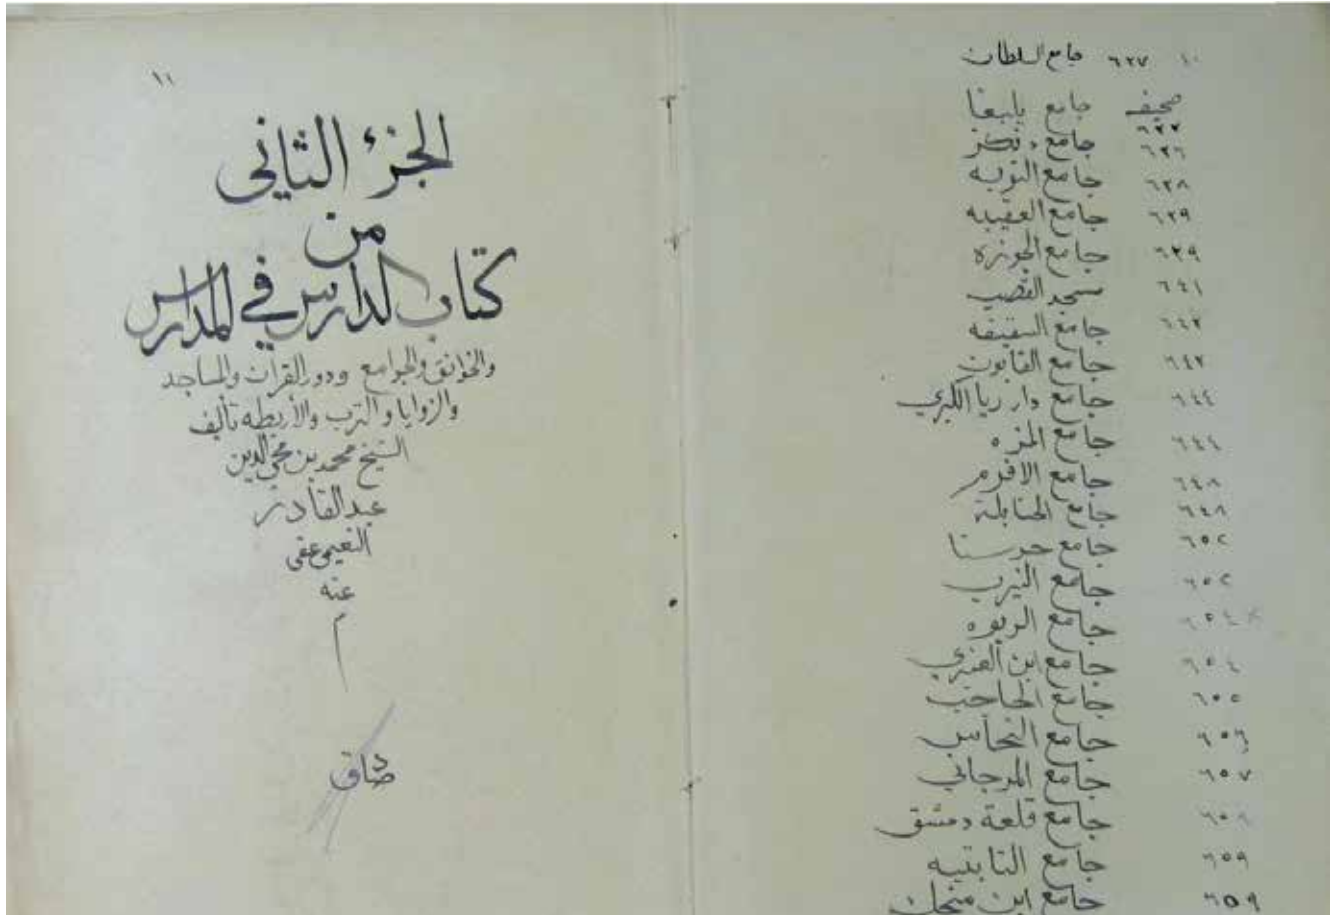 ١٠ ٦٢٧ جامع السلطان
صحيفه جامع يلبغا
٦٢٢
٦٢٦ جامع تنكز
٦٢٨ جامع التوبه
٦٢٩ جامع العقيبه
٦٢٩ جامع الجوزه
٦٤١ مسجد القصب
٦٤٢ جامع السقيفه
٦٤٢ جامع القابون
٦٤٤ جامع دار ريا الكبري
٦٤٤ جامع المزه
٦٤٨ جامع الافرم
٦٤٨ جامع الحنابلة
٦٥٢ جامع حرستا
٦٥٢ جامع النيرب
٦٥٤ جامع الربوه
٦٥٤ جامع ابن العنبري
٦٥٥ جامع الحاجب
٦٥٦ جامع النحاس
٦٥٧ جامع المرجاني
٦٥٨ جامع قلعة دمشق
٦٥٩ جامع الثابتيه
٦٥٩ جامع ابن منجك
١١
الجزء الثاني
من
كتاب الدارس في المدارس
والخوانق والجوامع ودور القران والمساجد
والزوايا والترب والأربطه تأليف
الشيخ محمد بن محي الدين
عبد القادر
النعيمي عفي
عنه
م